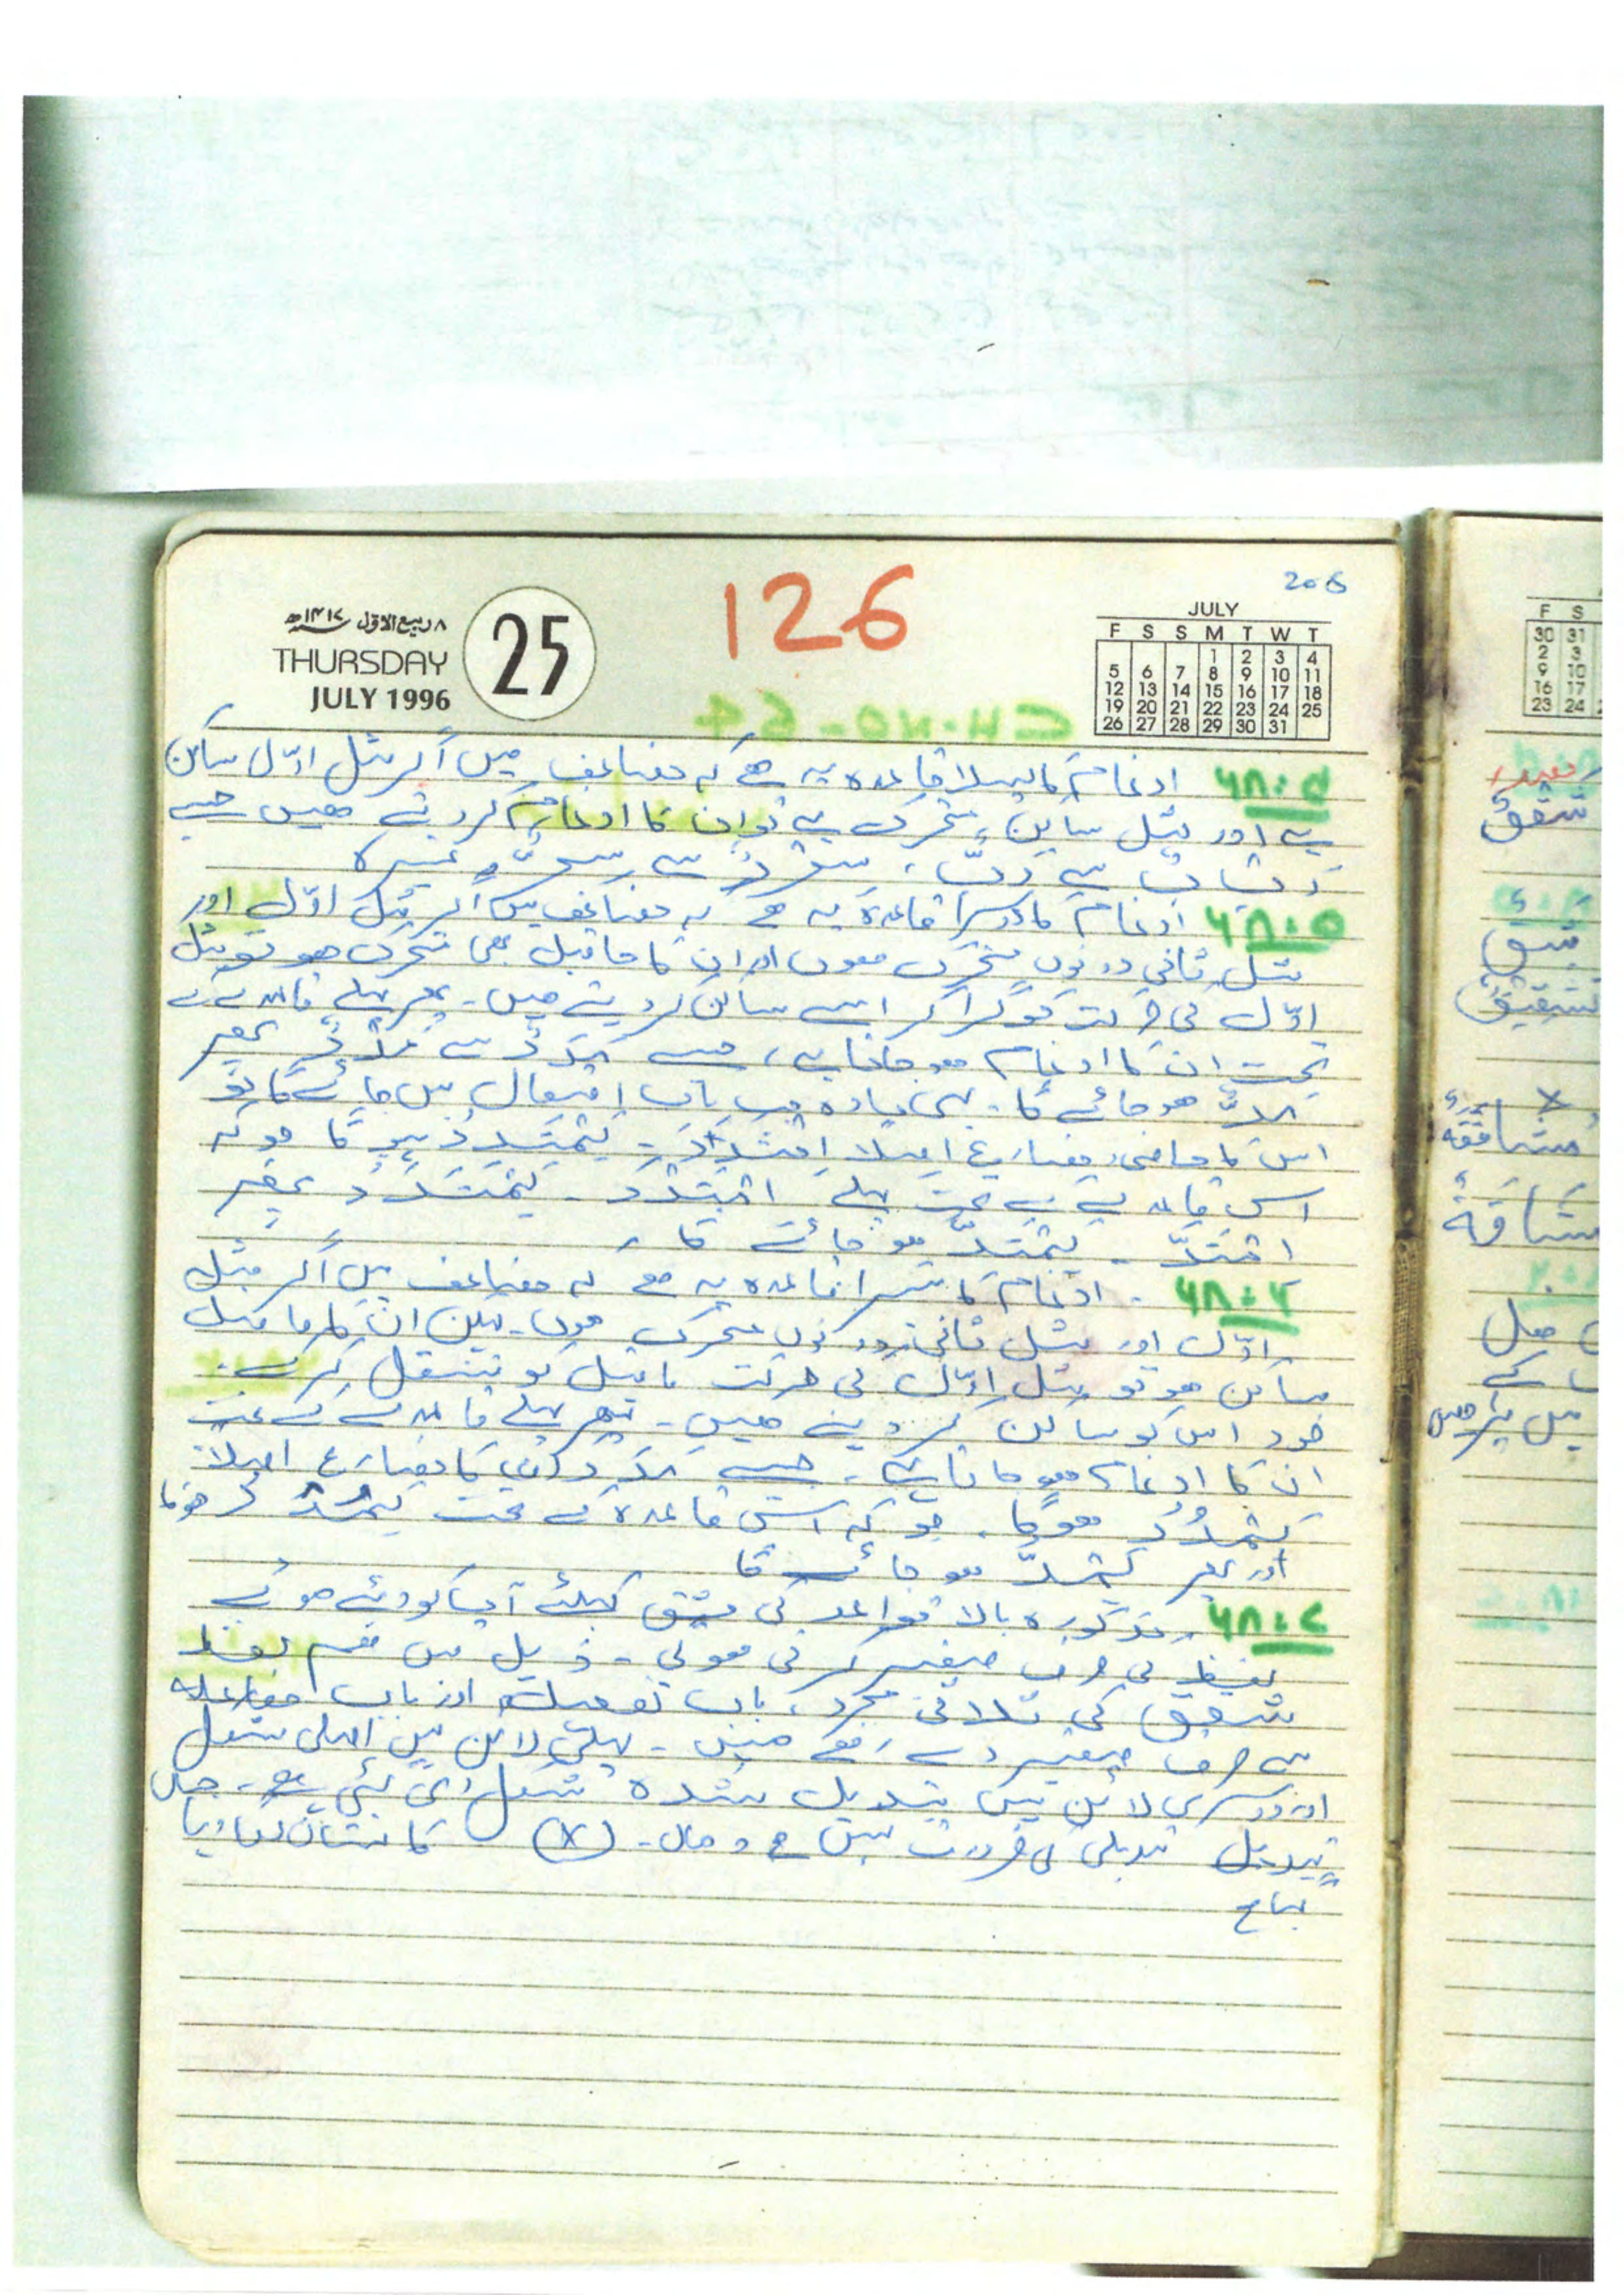 126
205
۸ ربیع الاوّل ۱۴۱۷ھ
THURSDAY
JULY 1996
25
JULY
F S S M T W T
1 2 3 4
5 6 7 8 9 10 11
12 13 14 15 16 17 18
19 20 21 22 23 24 25
26 27 28 29 30 31
ادغام کا پہلا قاعدہ یہ ہے کہ مضاعف میں اگر مثل اوّل ساکن
ہے اور مثل متحرک ہے تو ان کا ادغام کر دیتے ھیں جیسے
سے رَبٌّ ، سے سِرٌّ وغیرہ
۶۸:۵ ادغام کا دوسرا قاعدہ یہ ھے کہ مضاعف میں اگر مثل اوّل اور
مثل ثانی دونوں متحرک ھوں اور ان کا ماقبل بھی متحرک ھو تو مثل
اوّل کی حرکت کو گرا کر اسے ساکن کر دیتے ھیں۔ پھر پہلے قاعدے کے
تحت ان کا ادغام ھو جاتا ہے، جیسے مَدَدَ سے مَدْدَ پھر
مَدَّ ھو جائے گا۔ یہی مادہ جب باب افتعال میں جائے گا تو
اس کا ماضی، مضارع اصلاً اِمْتَدَدَ۔ یَمْتَدِدُ ہو گا جو کہ
اس قاعدے کے تحت پہلے اِمْتَدْدَ ۔ یَمْتَدْدُ پھر
اِمْتَدَّ ۔ یَمْتَدُّ ھو جائے گا ۔
۶۸:۶ ۔ ادغام کا تیسرا قاعدہ یہ ھے کہ مضاعف میں اگر مثل
اوّل اور مثل ثانی دونوں متحرک ھوں۔ لیکن ان کا ماقبل
ساکن ھو تو مثل اوّل کی حرکت ماقبل کو منتقل کر کے
خود اس کو ساکن کر دیتے ھیں۔ پھر پہلے قاعدے کے تحت
ان کا ادغام ھو جاتا ہے۔ جیسے مَدَدَ کا مضارع اصلاً
یَمْدُدُ ھوگا، جو کہ اس قاعدہ کے تحت یَمُدْدُ ھوگا
اور پھر یَمُدُّ ھو جائے گا
۶۸:۷ ۔ مذکورہ بالا قواعد کی مشق کیلئے آپ کو دیئے ھوئے
لفظ کی صرف صغیر کرنی ھوگی ۔ ذیل میں ھم لفظ
شقق کی ثلاثی مجرد، باب تفعیل اور باب مفاعلہ
سے صرف صغیر دے رھے ھیں ۔ پہلی لائن میں اصلی شکل
اور دوسری لائن میں تبدیل شدہ شکل دی گئی ہے۔ جہاں
تبدیلی کی ضرورت نہیں ھے وھاں۔ (X) کا نشان لگا دیا
گیا ھے
شقق
مشاققة
مشاقة